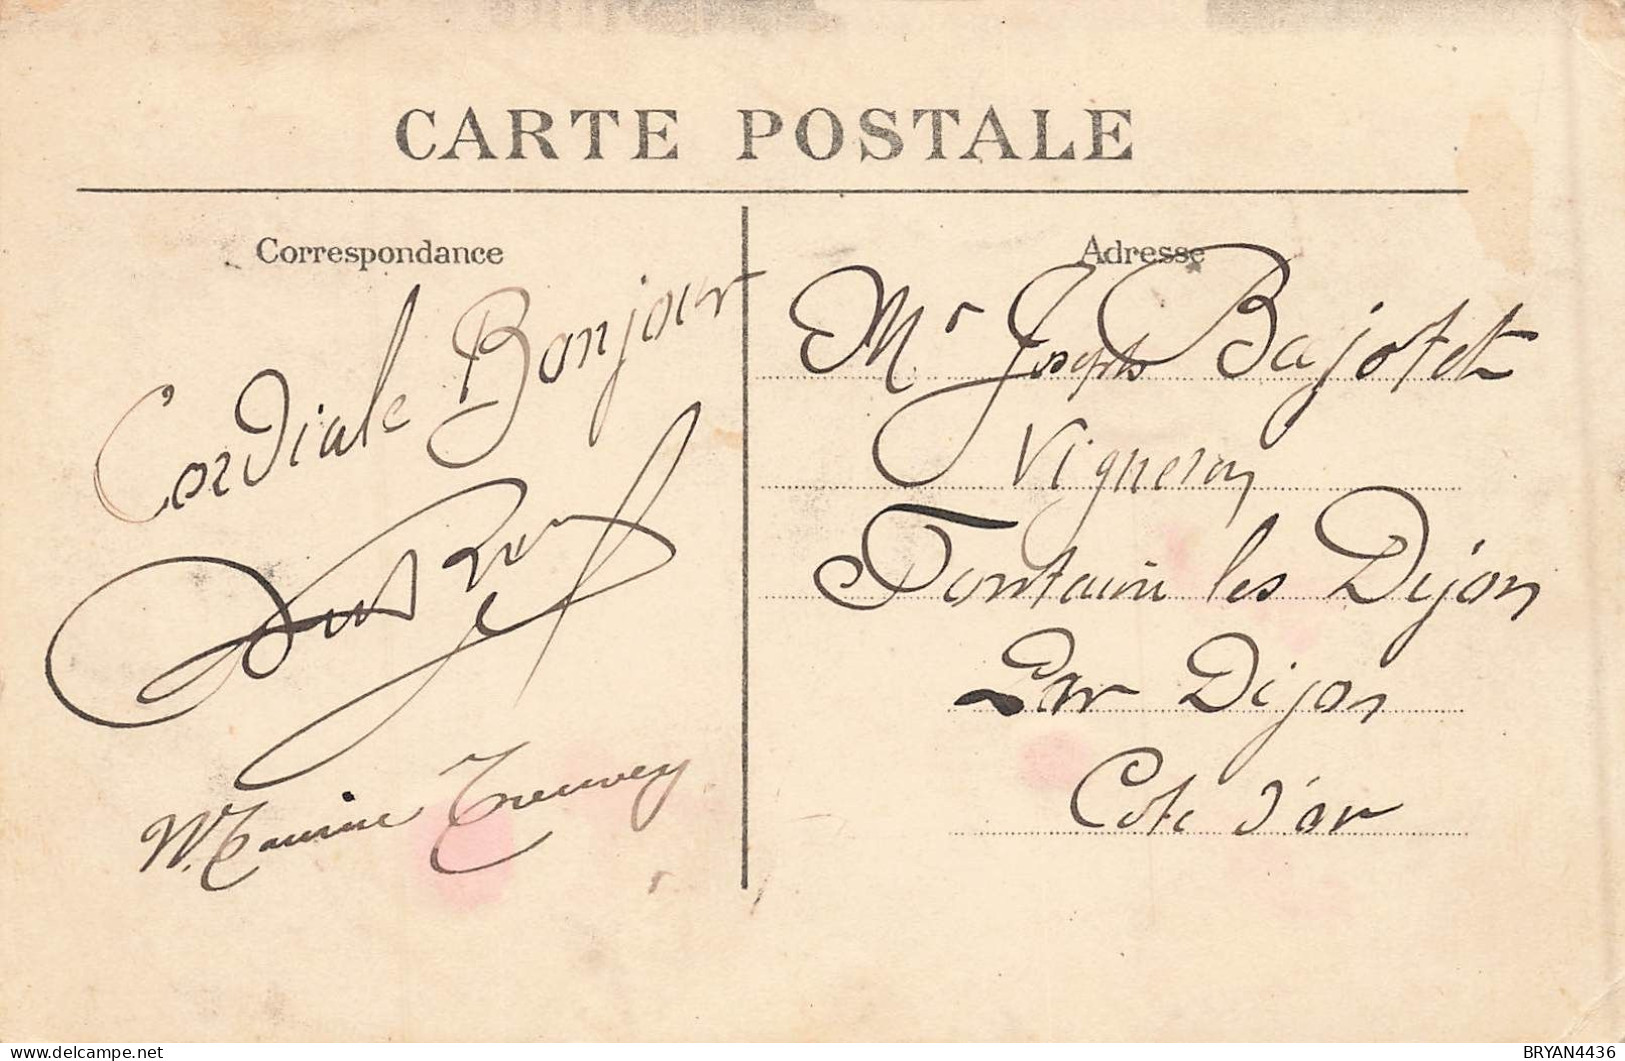 CARTE POSTALE
Correspondance
Cordiale Bonjour
Adresse
Mr Joseph Bajotet
Vigneron
Fontaine les Dijon
Par Dijon
Cote d'or
delcampe.net
BRYAN4436